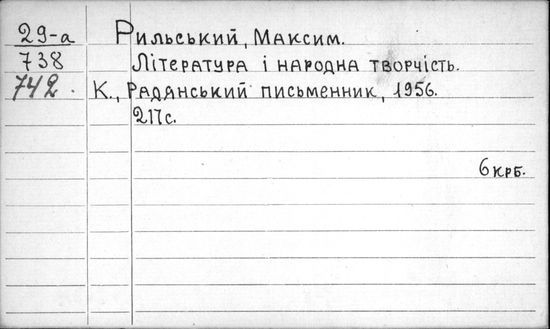 29-а Рильський, Максим.
738 Література і народна творчість.
742. К., Радянський письменник, 1956.
217с.
6 крб.